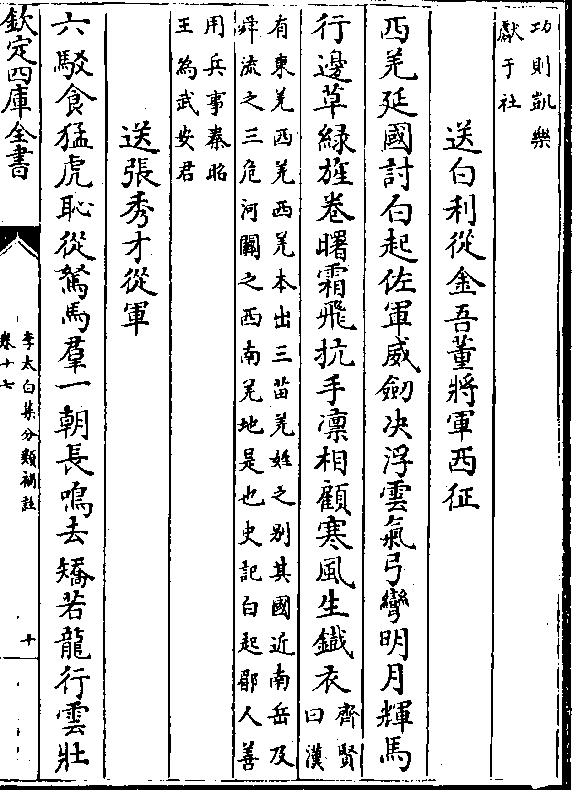 功則凱樂
獻于社
送白利從金吾董將軍西征
西羌延國討白起佐軍威劒决浮雲氣弓彎明月輝馬
行邊草緑旌卷曙霜飛抗手凛相顧寒風生鐡衣
齊賢
曰漢
有東羌西羌西羌本出三苗羌姓之别其國近南岳及
舜流之三危河闗之西南羌地是也史記白起郿人善
用兵事秦昭
王為武安君
送張秀才從軍
六駁食猛虎恥從駑馬羣一朝長鳴去矯若龍行雲壯
欽定四庫全書
李太白集分類補註
卷十七
十